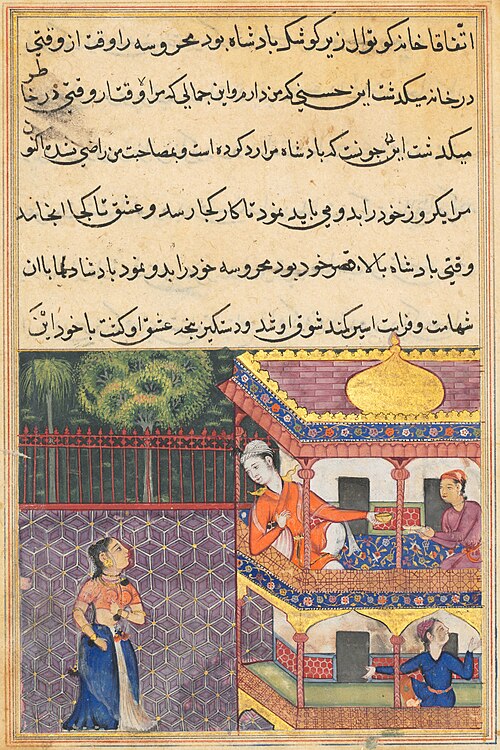 اتّفاقا خانه کوتوال زیر کوشک بادشاه بود محروسه را وقت از وقتی
در خانه میکدشت این حسنی که من دارم و این جمالی که مرا و قتی در خا
میکدشت این چونست که بادشاه مرا رد کرده است و بمصاحت من راضی نشده اکنون
مرا یکروز خود را بدو می باید نمود تا کار کجا رسد و عشق تا کجا انجامد
وقتی بادشاه بالاء قصر خود بود محروسه خود را بدو نمود بادشاه با ان
شهامت و فراست اسیر کمند شوق او شد و دستکیر پنجه عشق او کشت با خود